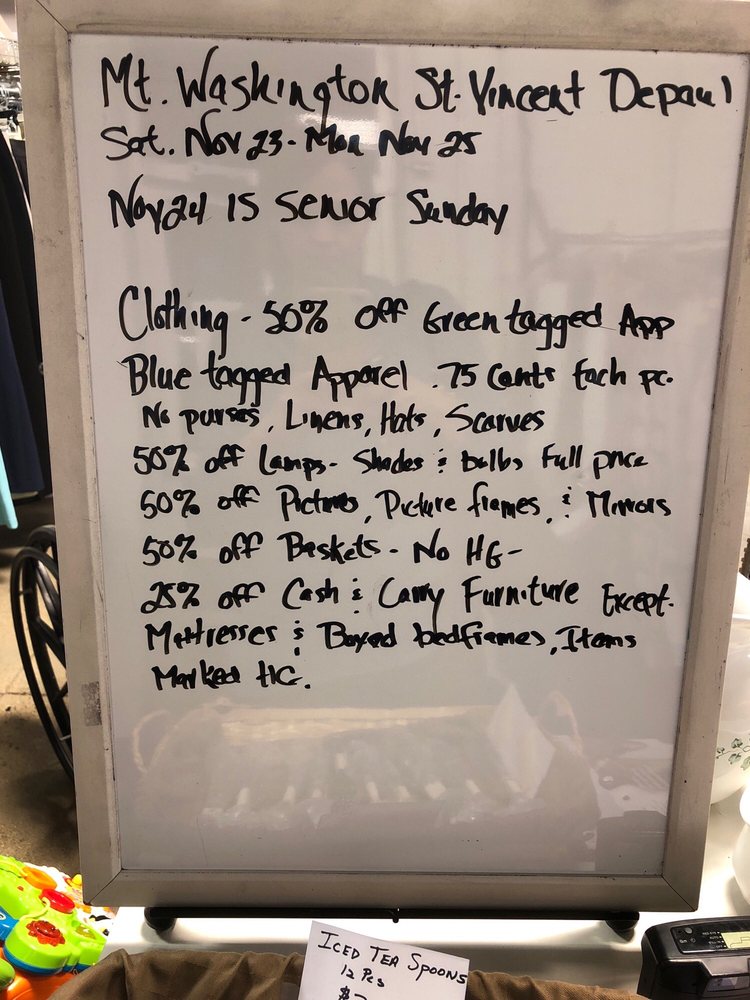 Mt. Washington St. Vincent Depaul
Sat. Nov 23 - Mon Nov 25
Nov 24 IS Senior Sunday
Clothing - 50% off Green tagged App
Blue tagged Apparel .75 Cents Each pc.
No purses, Linens, Hats, Scarves
50% off Lamps - Shades & bulbs Full price
50% off Pictures, Picture frames, & Mirrors
50% off Baskets - No HG -
25% off Cash & Carry Furniture Except -
Mattresses & Boxed bedframes, Items
Marked HG.
ICED TEA SPOONS
12 Pcs